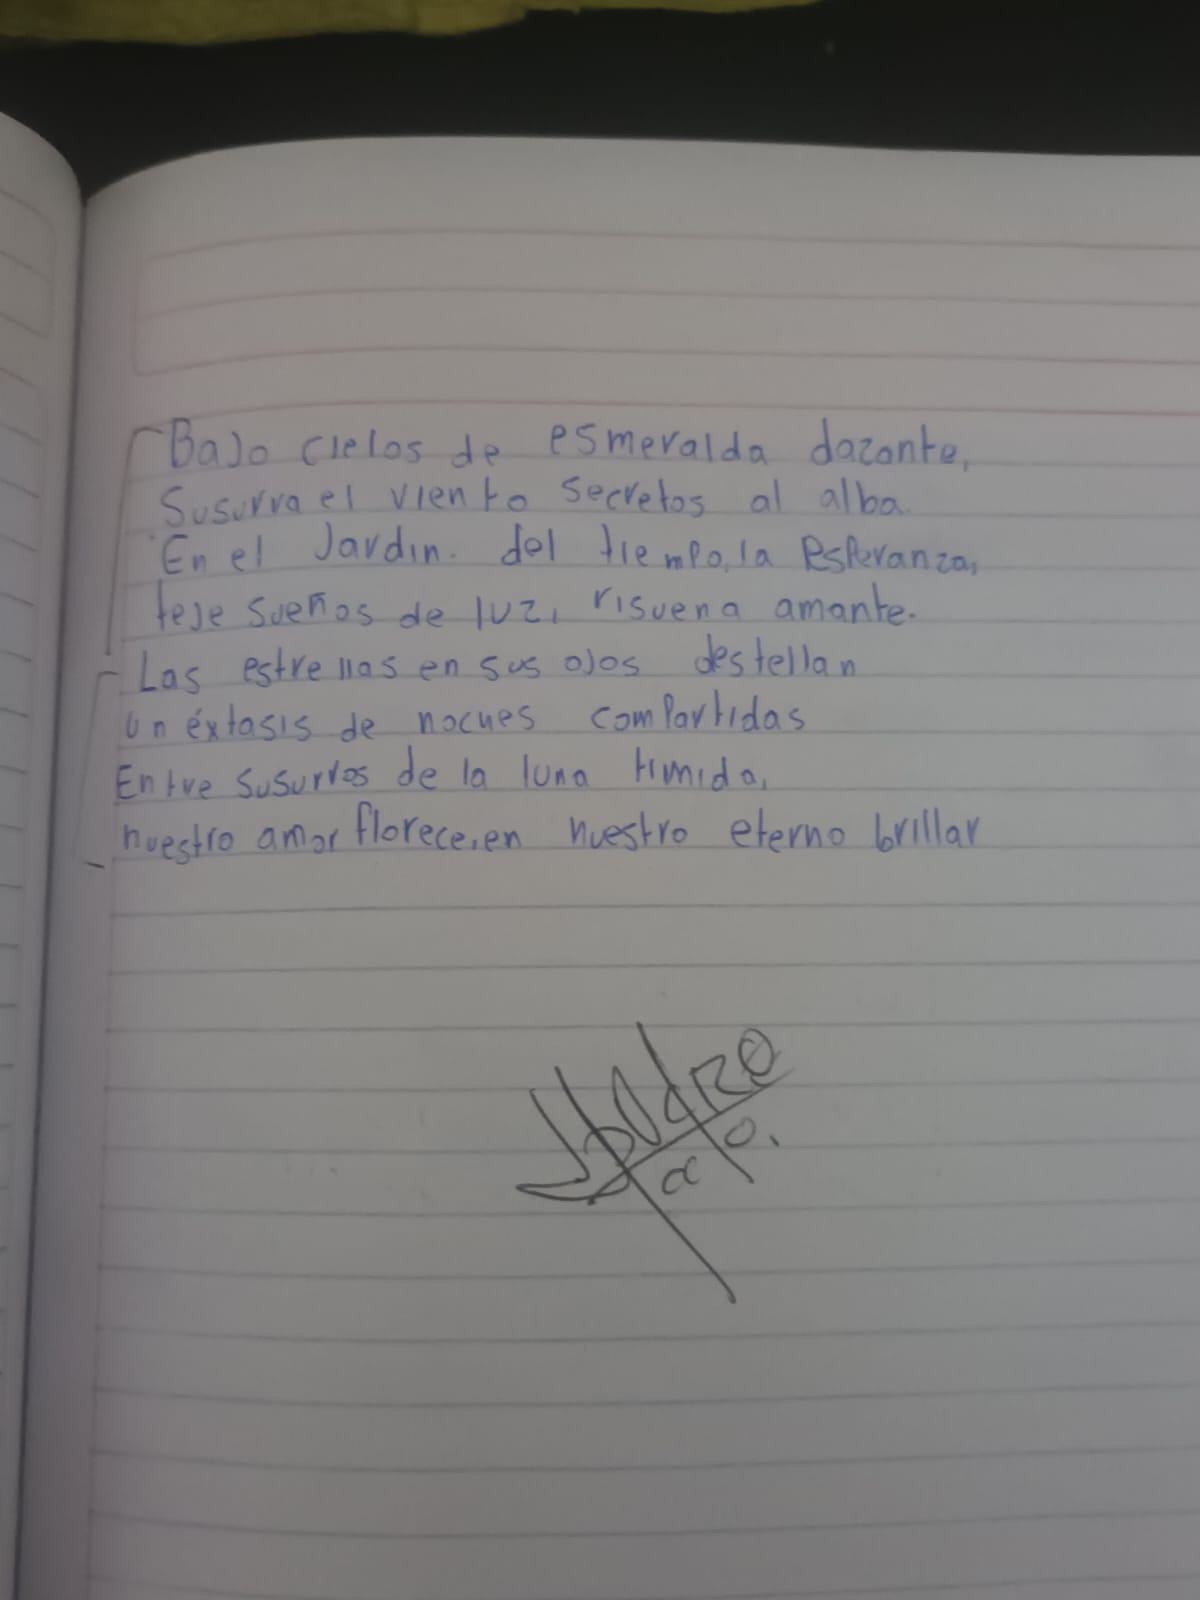 Bajo cielos de esmeralda dazante,
Susurra el viento secretos al alba.
En el Jardin. del tiempo, la Esperanza,
teje sueños de luz, risuena amante.
Las estrellas en sus ojos destellan
un éxtasis de noches compartidas
Entre susurros de la luna timida,
nuestro amor florece, en nuestro eterno brillar